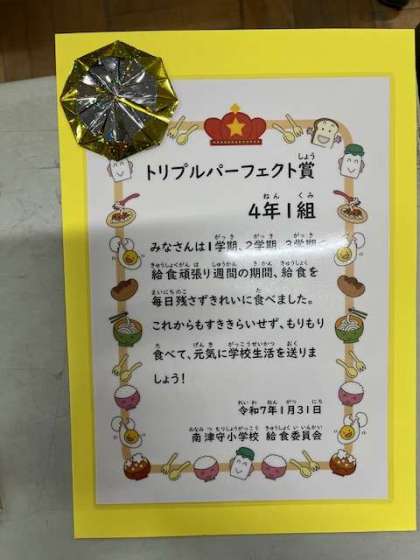 トリプルパーフェクト賞
4年1組
みなさんは1学期、2学期、3学期の
給食頑張り週間の期間、給食を
毎日残さずきれいに食べました。
これからもすききらいせず、もりもり
食べて、元気に学校生活を送りま
しょう!
令和7年1月31日
南津守小学校 給食委員会